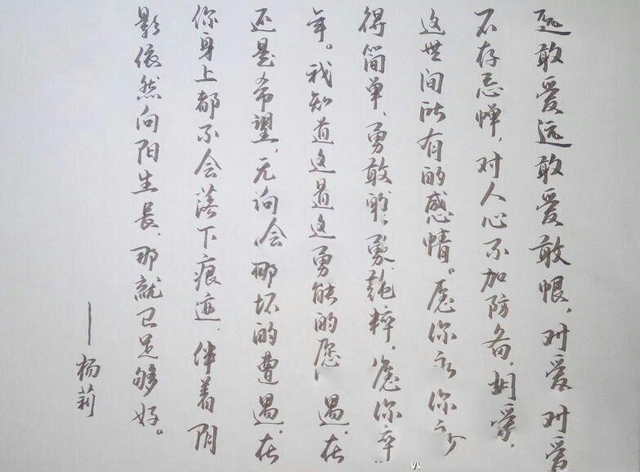 远敢爱远敢爱敢恨，对爱对爱
不存忌惮，对人心不加防备，
这世间所有的感情。愿你永你
得简单，勇敢、纯粹，愿你
年。我知道这道这勇能的愿 遇，在
还是希望，无论会那坏的遭遇，在
你身上都不会落下痕迹，伴着阴
影依然向阳生长，那就已足够好。
——杨莉